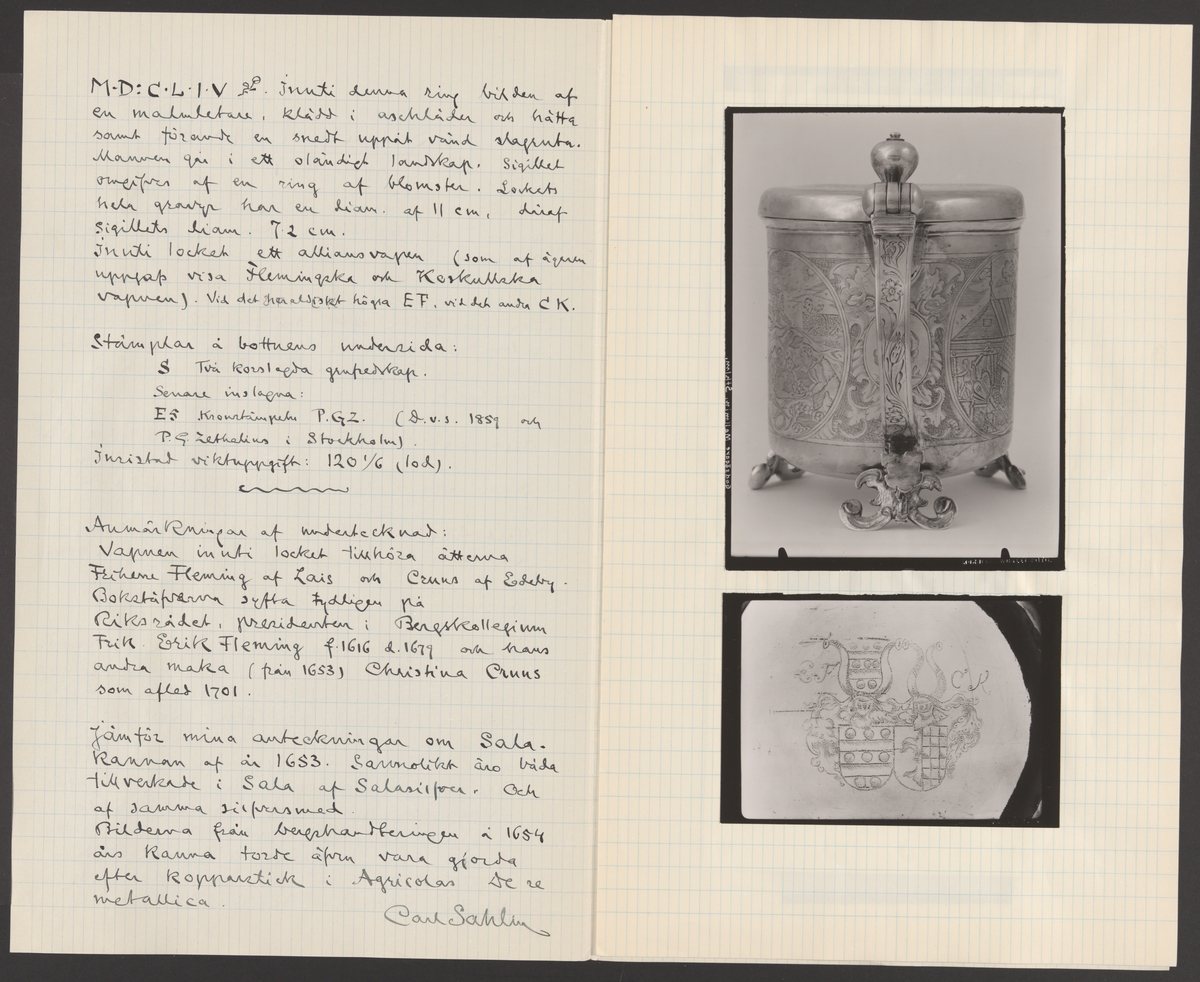 M·D:C·L·I·V. Innti denna ring bilden af
en malmletare, klädd i aschläder och hätta
samt förande en snedt uppåt vänd slagruta.
Mannen går i ett oländigt landskap. Sigillet
omgifves af en ring af blomster. Lockets
hela gravyr har en diam. af 11 cm, däraf
sigillets diam. 7.2 cm.
Innti locket ett alliansvapen (som af ägaren
uppgås visa Flemingska och Koskullska
vapnen). Vid det heraldiskt högra EF, vid det andra CK.
Stämplar å bottnens undersida:
S Två korslagda grufredskap.
Senare inslagna:
ES Kronstämpeln P.G.Z. (D.v.s. 1859 och
P.G. Zethelius i Stockholm).
Inristad viktuppgift: 120 1/6 (lod).
Anmärkningar af undertecknad:
Vapnen innti locket tillhöra ätterna
Friherre Fleming af Lais och Cruus af Edeby.
Bokstäfverna syfta tydligen på
Riksrådet, presidenten i Bergskollegium
Frih. Erik Fleming f. 1616 d. 1679 och hans
andra maka (från 1653) Christina Cruus
som afled 1701.
Jämför mina anteckningar om Sala-
Kannan af år 1653. Sannolikt äro båda
tillverkade i Sala af Salasilfver. Och
af samma silfversmed.
Bilderna från bergshandteringen å 1654
års Kanna torde äfven vara gjorda
efter kopparstick i Agricolas De re
metallica.
Carl Sahlin
E F
C K